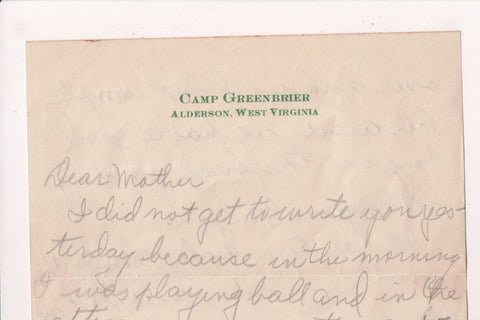 CAMP GREENBRIER
ALDERSON, WEST VIRGINIA
Dear Mother
I did not get to write you yes-
terday because in the morning
I was playing ball and in the